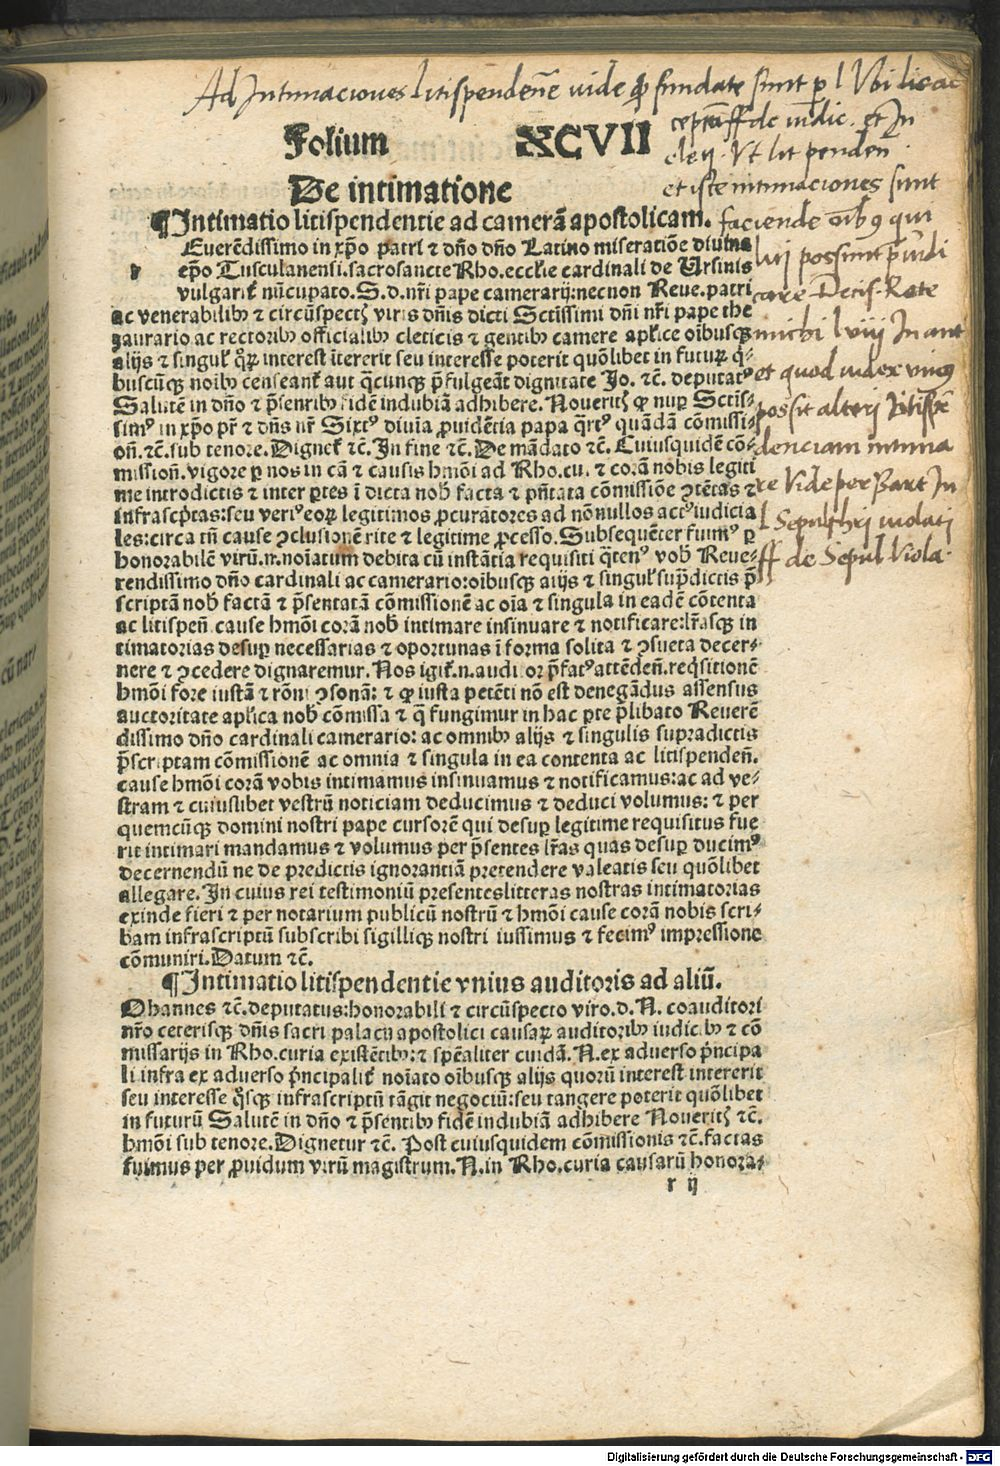 Ad Intimaciones litispendeñe uide ꝙ fundate sunt p̱ l Vbi lic ac
Folium XCVII
ff de iudic. et In
cle ij. Vt lit penden̄
De intimatione
et iste intimaciones sunt
¶Intimatio litispendentie ad camerā apostolicam.
faciende oībꝯ qui
Euerēdissimo in xp̄o patri ⁊ dn̄o dn̄o Latino miseratiōe diuina
r ep̄o Tusculanensi.sacrosancte Rho.eccl'ie cardinali de Ursinis
liti possunt p̄iudi
vulgarit̓ nūcupato.S.d.nr̄i pape camerarij:necnon Reue.patri
care Decis. Rote
ac venerabilibꝫ ⁊ circūspectꝭ viris dn̄is dicti Sctissimi dn̄i nr̄i pape the
zaurario ac rectoribꝫ officialibꝫ clericis ⁊ gentibꝫ camere apl'ice oībusqꝫ
michi l viij In ant
alijs ⁊ singul' qꝝ interest ītererit seu interesse poterit quōlibet in futurꝝ q̇-
et quod iudex vnius
buscūqꝫ noībꝫ censeant̓ aut q̄cunqꝫ p̄fulgeāt dignitate Jo. ⁊c̄. deputatꝰ
Salutē in dn̄o ⁊ p̄sentibꝫ fidē indubiā adhibere. Noueritꝭ ꝙ nuꝑ Sctis-
possit alteri litispē
simꝰ in xp̄o pr̄ ⁊ dn̄s nr̄ Sixtꝰ diuia ꝓuidētia papa q̄rtꝰ quādā cōmissi-
oñ. ⁊c̄.sub tenore. Dignet̓ ⁊c̄. In fine ⁊c̄. De mādato ⁊c̄. Cuiusquidē cō-
denciam intima
missioñ.vigore ꝑ nos in cā ⁊ causis hmōi ad Rho.cu. ⁊ corā nobis legiti
re Vide per Bart In
me introdictis ⁊ inter ꝑtes ī dicta nob̓ facta ⁊ pn̄tata cōmissiōe ꝯtētas ⁊
infrascp̄tas:seu veriꝰ eoꝝ legitimos ꝓcuratores ad nōnullos actꝰ iudicia
l Sepulchri violati
les:circa tn̄ cause ꝯclusionē rite ⁊ legitime ꝓcesso.Subsequēter fuimꝰ ꝑ
ff de Sepul Viola.
honorabilē virū.n.noīatum debita cū instātia requisiti q̄tenꝰ vob̓ Reue-
rendissimo dn̄o cardinali ac camerario:oībusqꝫ alijs ⁊ singul' supdictis p̄
scriptā nob̓ factā ⁊ p̄sentatā cōmissionē ac oīa ⁊ singula in eadē cōtenta
ac litispeñ.cause hmōi corā nob̓ intimare insinuare ⁊ notificare:lr̄asqꝫ in
timatorias desuꝑ necessarias ⁊ oportunas ī forma solita ⁊ ꝯsueta decer-
nere ⁊ ꝯcedere dignaremur. Nos igit̓.n.auditor p̄fatꝰ attēdeñ.reqͥsitionē
hmōi fore iustā ⁊ rōni ꝯsonā: ⁊ ꝙ iusta petēti nō est denegādus assensus
auctoritate apl'ica nob̓ cōmissa ⁊ q̄ fungimur in hac ꝑte p̄libato Reuerē
dissimo dn̄o cardinali camerario: ac omnibꝫ alijs ⁊ singulis supradictis
p̄scriptam cōmissionē ac omnia ⁊ singula in ea contenta ac litispendeñ.
cause hmōi corā vobis intimamus insinuamus ⁊ notificamus:ac ad ve-
stram ⁊ cuiuslibet vestrū noticiam deducimus ⁊ deduci volumus: ⁊ per
quemcūqꝫ domini nostri pape cursorē qui desuꝑ legitime requisitus fue
rit intimari mandamus ⁊ volumus per p̄sentes lr̄as quas desuꝑ ducimꝰ
decernendū ne de predictis ignorantiā pretendere valeatis seu quōlibet
allegare.In cuius rei testimoniū presentes litteras nostras intimatorias
exinde fieri ⁊ per notarium publicū nostrū ⁊ hmōi cause corā nobis scri-
bam infrascriptū subscribi sigilliqꝫ nostri iussimus ⁊ fecimꝰ impressione
cōmuniri.Datum ⁊c̄.
¶Intimatio litispendentie vnius auditoris ad aliū.
Ohannes ⁊c̄.deputatus:honorabili ⁊ circūspecto viro.d.N. coauditori
nr̄o ceterisqꝫ dn̄is sacri palacij apostolici causaꝝ auditoribꝫ iudicibꝫ ⁊ cō
missarijs in Rho.curia existētibꝫ:⁊ spēaliter cuidā.N.ex aduerso p̄ncipa
li infra ex aduerso p̄ncipalit̓ noīato oībusqꝫ alijs quorū interest intererit
seu interesse qͦsqꝫ infrascriptū tāgit negociū:seu tangere poterit quōlibet
in futurū Salutē in dn̄o ⁊ p̄sentibꝫ fidē indubiā adhibere Noueritꝭ ⁊c̄.
hmōi sub tenore.Dignetur ⁊c̄. Post cuiusquidem cōmissionis ⁊c̄.factas
fuimus per ꝓuidum virū magistrum.N.in Rho.curia causarū honora-
r ij
Digitalisierung gefördert durch die Deutsche Forschungsgemeinschaft - DFG